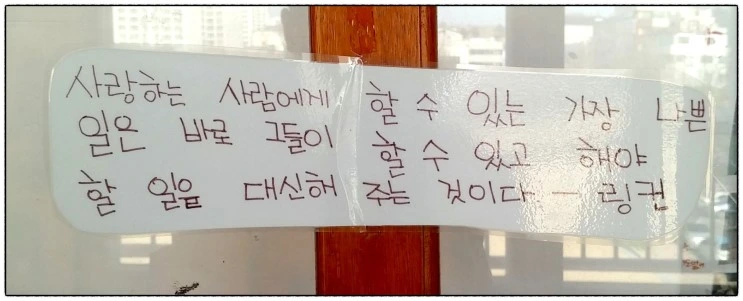 사랑하는 사람에게 할 수 있는 가장 나쁜
일은 바로 그들이 할 수 있고 해야
할 일을 대신해 주는 것이다. - 링컨